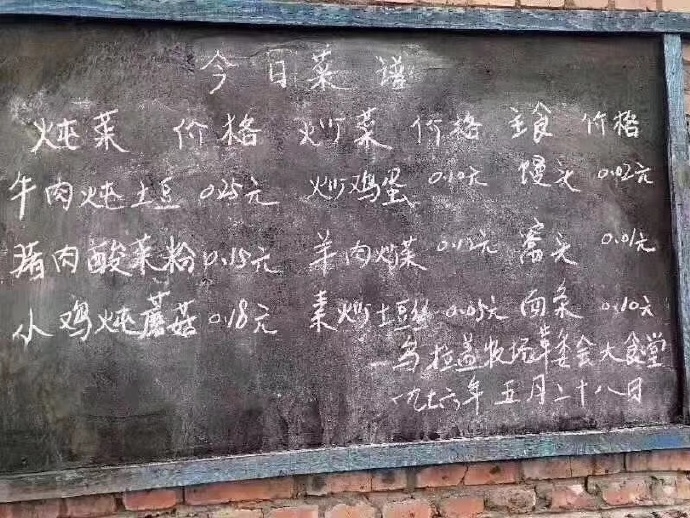 今日菜谱
炖菜 价格 炒菜 价格 主食 价格
牛肉炖土豆 0.25元 炒鸡蛋 0.10元 馒头 0.02元
猪肉酸菜粉 0.15元 羊肉炒菜 0.12元 窝头 0.01元
小鸡炖蘑菇 0.18元 素炒土豆丝 0.05元 面条 0.10元
乌拉盖牧场革委会大食堂
一九七六年五月二十八日